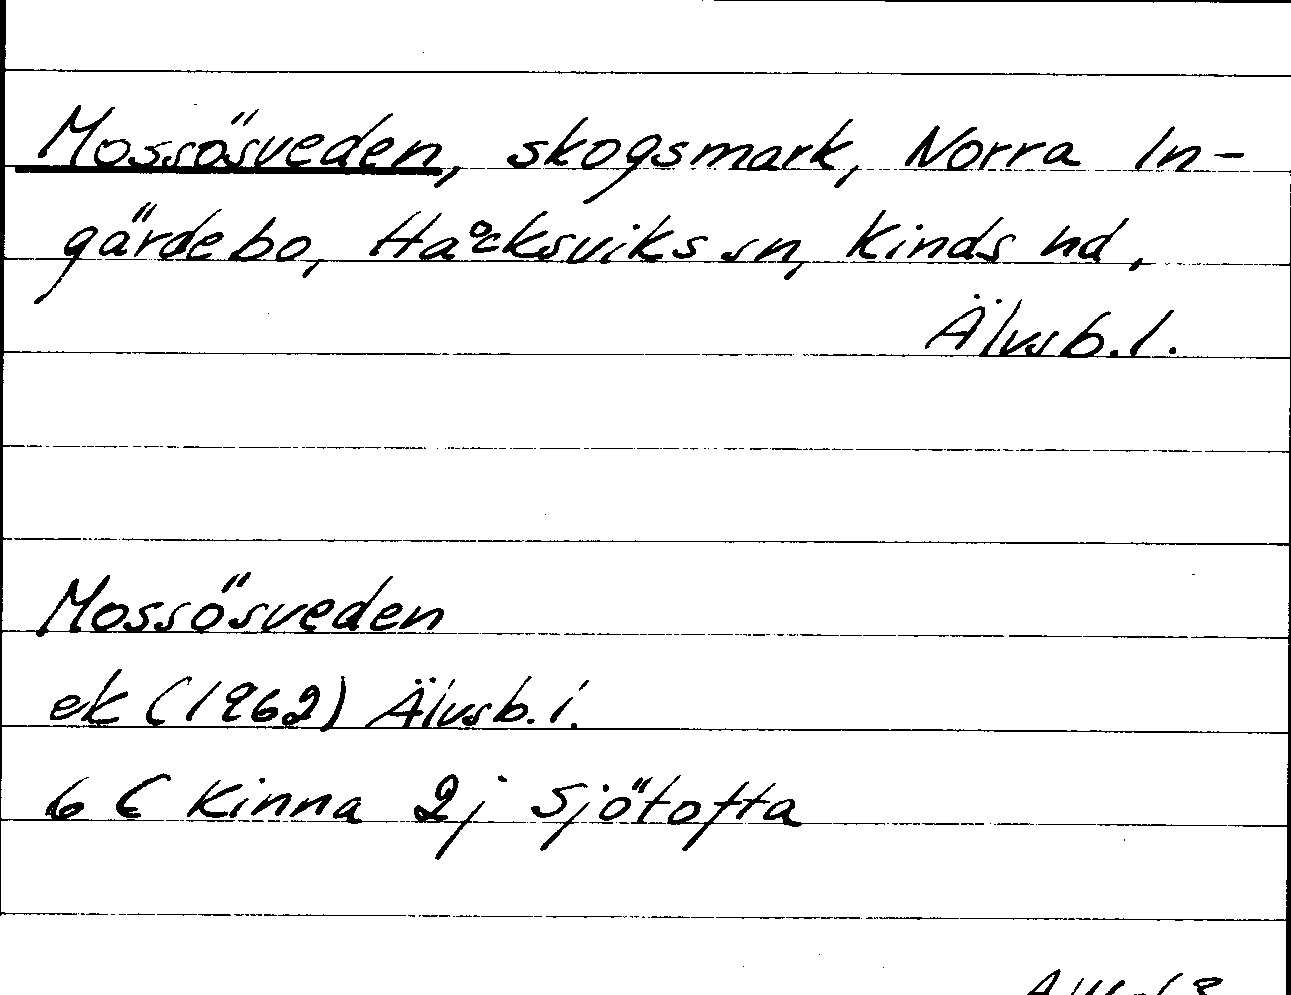 Mossösveden, skogsmark, Norra In-
gärdebo, Håcksviks sn, Kinds hd,
Älvsb. l.
Mossösveden
ek (1962) Älvsb. l.
6 C Kinna 2j Sjötofta